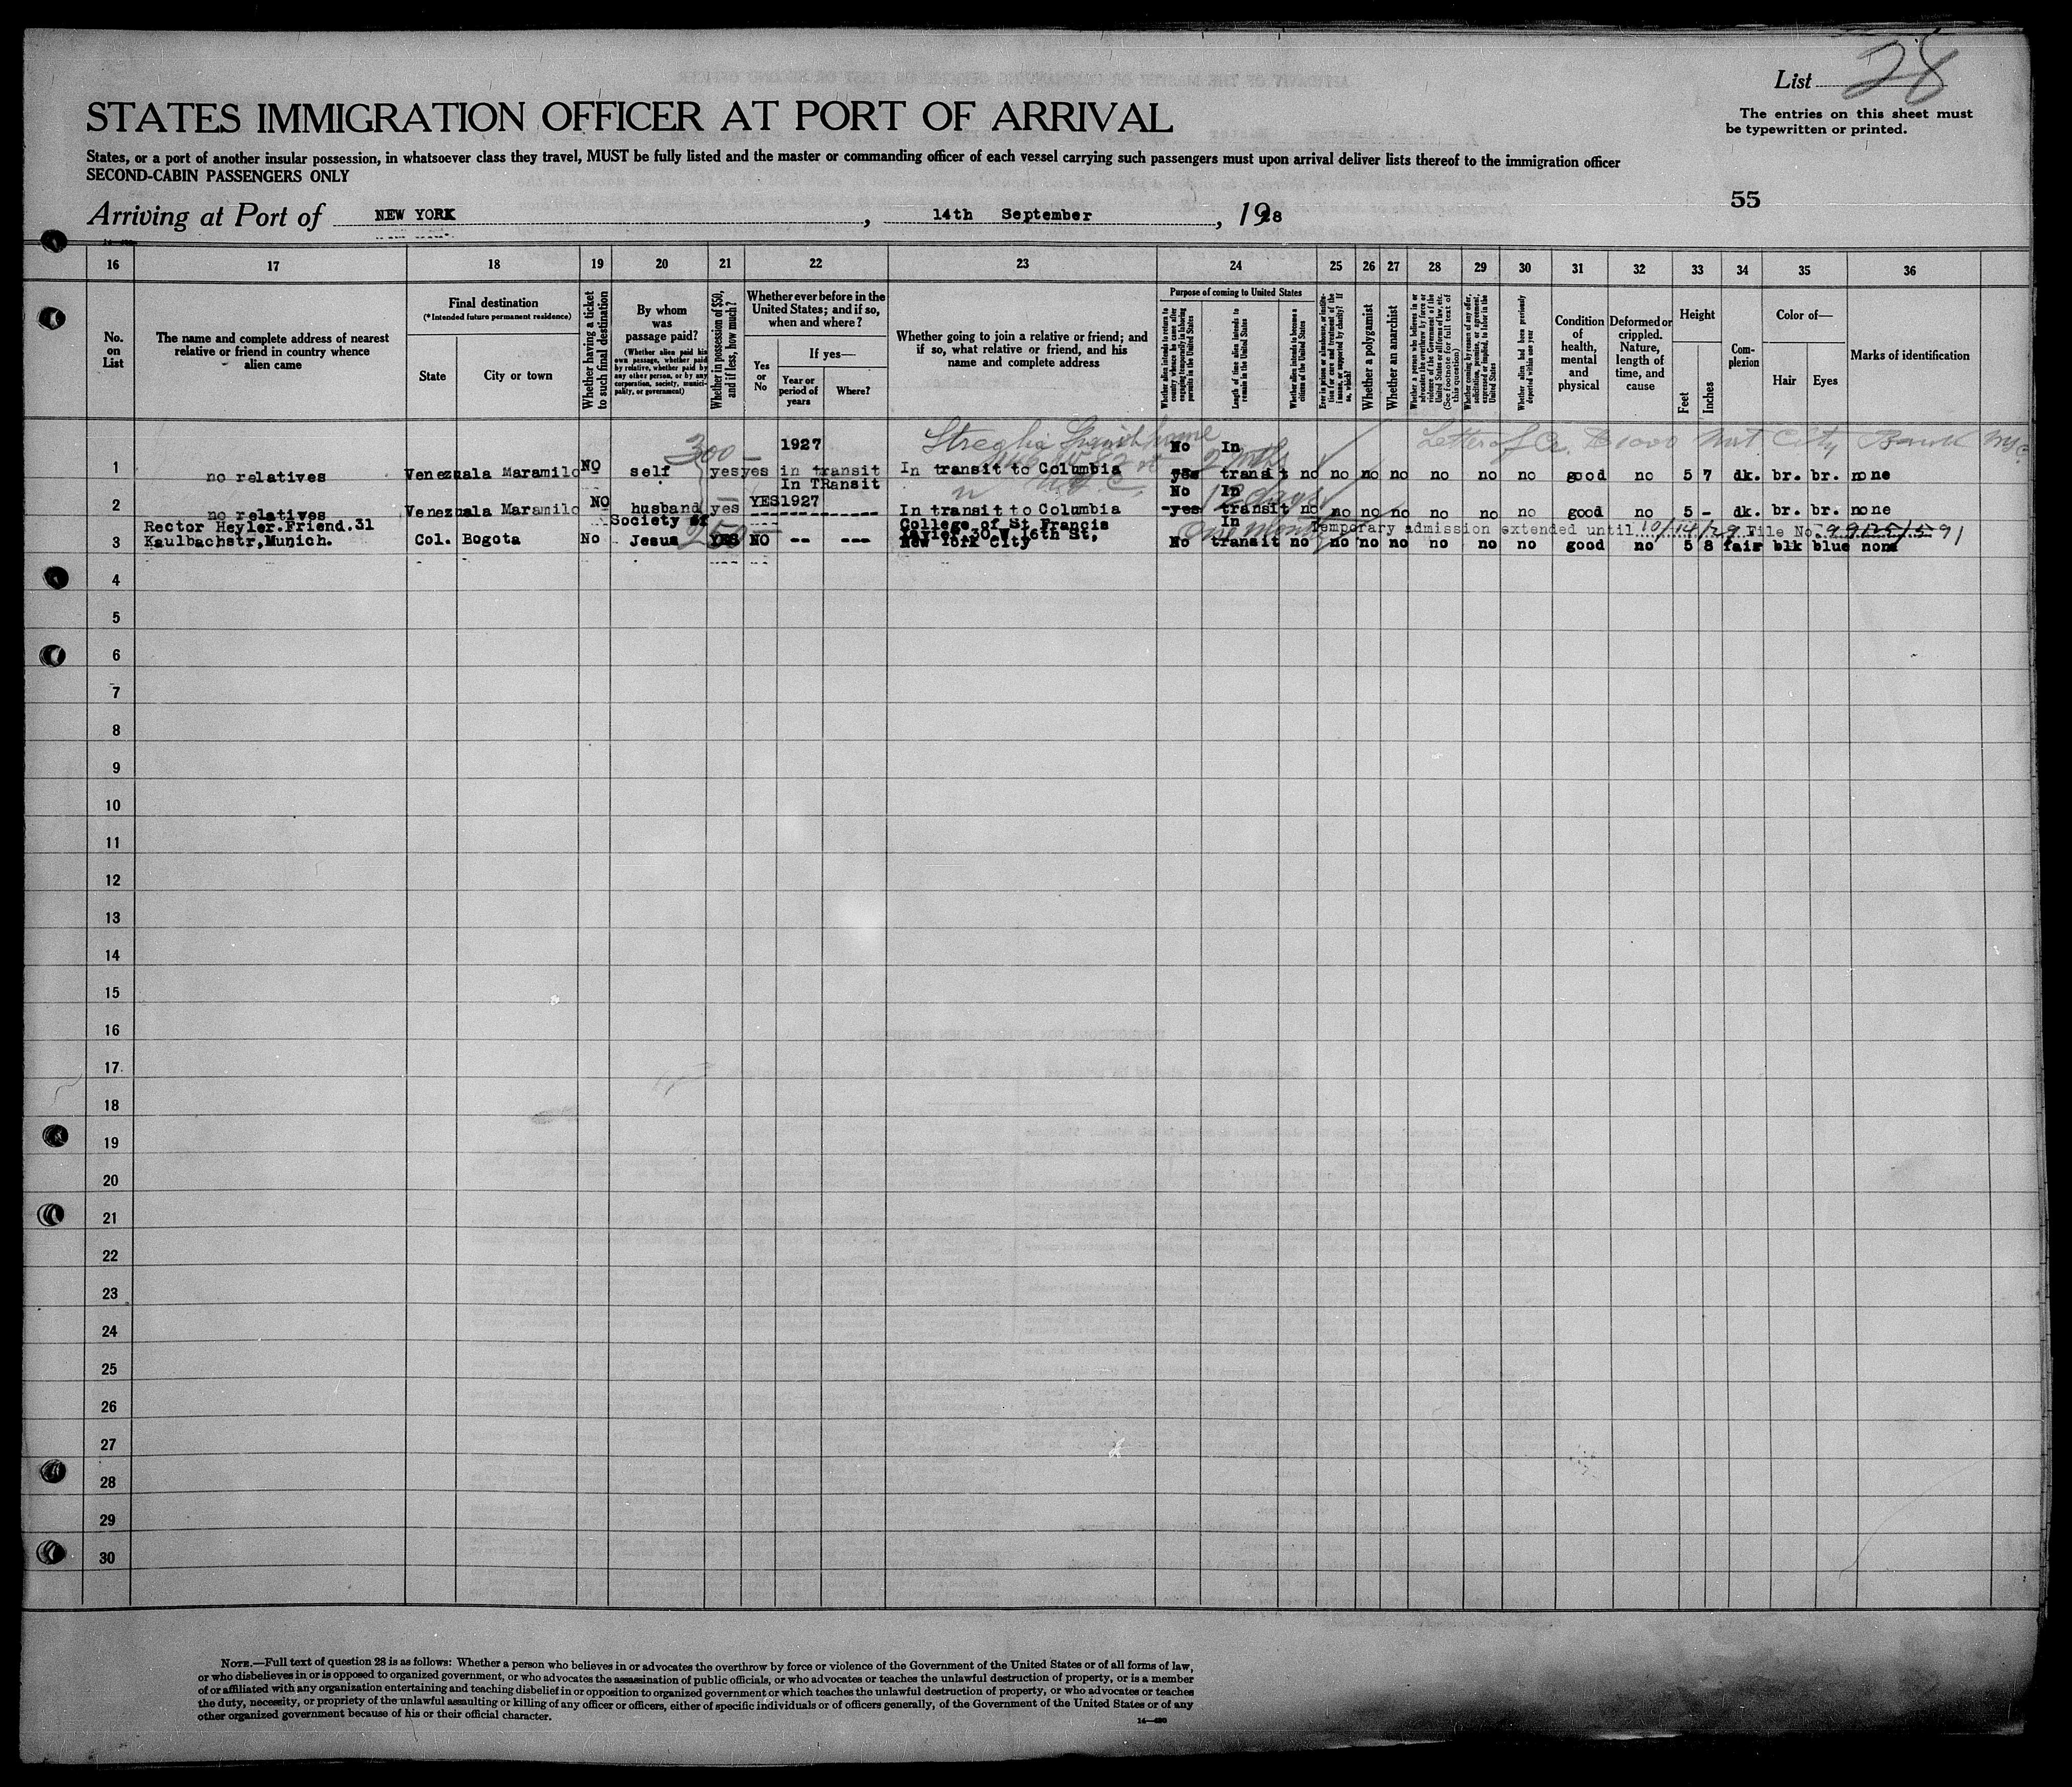 List 28
The entries on this sheet must
be typewritten or printed.
STATES IMMIGRATION OFFICER AT PORT OF ARRIVAL
States, or a port of another insular possession, in whatsoever class they travel, MUST be fully listed and the master or commanding officer of each vessel carrying such passengers must upon arrival deliver lists thereof to the immigration officer
SECOND-CABIN PASSENGERS ONLY
55
Arriving at Port of NEW YORK, 14th September, 1928
16 17 18 19 20 21 22 23 24 25 26 27 28 29 30 31 32 33 34 35 36
No. on List
The name and complete address of nearest relative or friend in country whence alien came
Final destination
(*Intended future permanent residence)
State
City or town
Whether having a ticket to such final destination
By whom was passage paid?
(Whether alien paid his own passage, whether paid by relative, whether paid by any other person, or by any corporation, society, municipality, or government)
Whether in possession of $50, and if less, how much?
Whether ever before in the United States; and if so, when and where?
Yes or No
If yes—
Year or period of years
Where?
Whether going to join a relative or friend; and if so, what relative or friend, and his name and complete address
Purpose of coming to United States
Whether alien intends to return to country whence he came after engaging temporarily in laboring pursuits in the United States
Length of time alien intends to remain in the United States
Whether alien intends to become a citizen of the United States
Ever in prison or almshouse, or institution for care and treatment of the insane, or supported by charity? If so, which?
Whether a polygamist
Whether an anarchist
Whether a person who believes in or advocates the overthrow by force or violence of the Government of the United States or all forms of law, etc. (See footnote for full text of this question)
Whether coming by reason of any offer, solicitation, promise, or agreement, expressed or implied, to labor in the United States
Whether alien had been previously deported within one year
Condition of health, mental and physical
Deformed or crippled. Nature, length of time, and cause
Height
Feet
Inches
Complexion
Color of—
Hair
Eyes
Marks of identification
1927 No In Letter of Cr. 1000 Nat City Bank NYC
300
1 no relatives Venezuala Maramilo NO self yes yes in transit In transit to Columbia yes transit no no no no no no no good no 5 7 dk. br. br. none
In TRansit No In
12 days
2 no relatives Venezuala Maramilo NO husband yes YES 1927 In transit to Columbia yes transit no no no no no no no good no 5 - dk. br. br. none
Rector Heyler.Friend.31 Society of College of St Francis In Temporary admission extended until 10/14/29 File No. 99125/591
250 One Month
Kaulbachstr,Munich. Col. Bogota No Jesus YES NO -- --- Xavier 30 W 16th St,
New York City
3 No transit no no no no no no no good no 5 8 fair blk blue none
4
5
6
7
8
9
10
11
12
13
14
15
16
17
18
19
20
21
22
23
24
25
26
27
28
29
30
NOTE.—Full text of question 28 is as follows: Whether a person who believes in or advocates the overthrow by force or violence of the Government of the United States or of all forms of law,
or who disbelieves in or is opposed to organized government, or who advocates the assassination of public officials, or who advocates or teaches the unlawful destruction of property, or is a member
of or affiliated with any organization entertaining and teaching disbelief in or opposition to organized government or which teaches the unlawful destruction of property, or who advocates or teaches
the duty, necessity, or propriety of the unlawful assaulting or killing of any officer or officers, either of specific individuals or of officers generally, of the Government of the United States or of any
other organized government because of his or their official character.
14—480